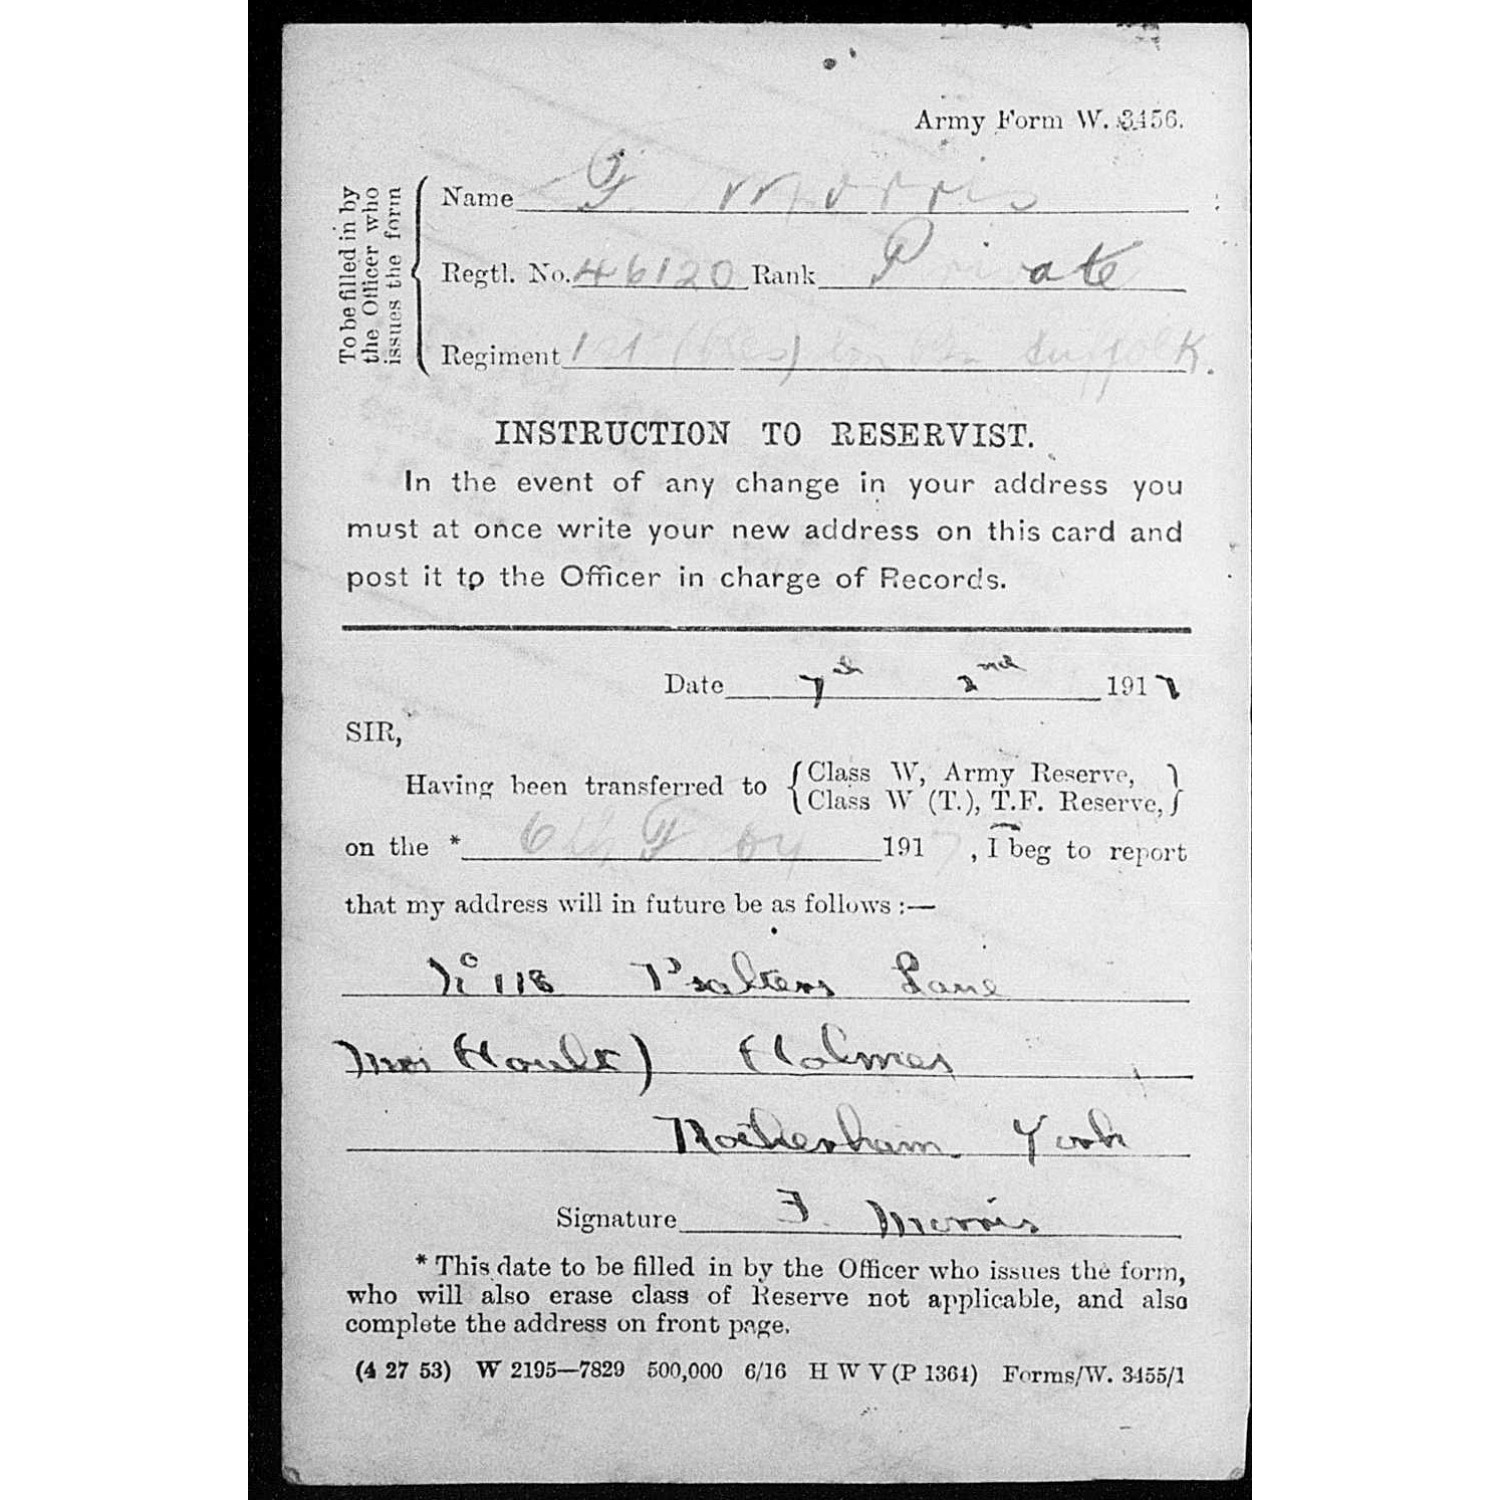 Army Form W. 3456.
To be filled in by
the Officer who
issues the form
Name F Morris
Regtl. No. 46120 Rank Private
Regiment 1st (Res) Suffolk.
INSTRUCTION TO RESERVIST.
In the event of any change in your address you
must at once write your new address on this card and
post it to the Officer in charge of Records.
Date 7th 2nd 1917
SIR,
Having been transferred to { Class W, Army Reserve, }
{ Class W (T.), T.F. Reserve, }
on the * 6th 1917, I beg to report
that my address will in future be as follows :—
No 118 Psalters Lane
Mrs Hoult) Holmes
Rotherham York
Signature F. Morris
* This date to be filled in by the Officer who issues the form,
who will also erase class of Reserve not applicable, and also
complete the address on front page.
(4 27 53) W 2195—7829 500,000 6/16 H W V (P 1364) Forms/W. 3455/1